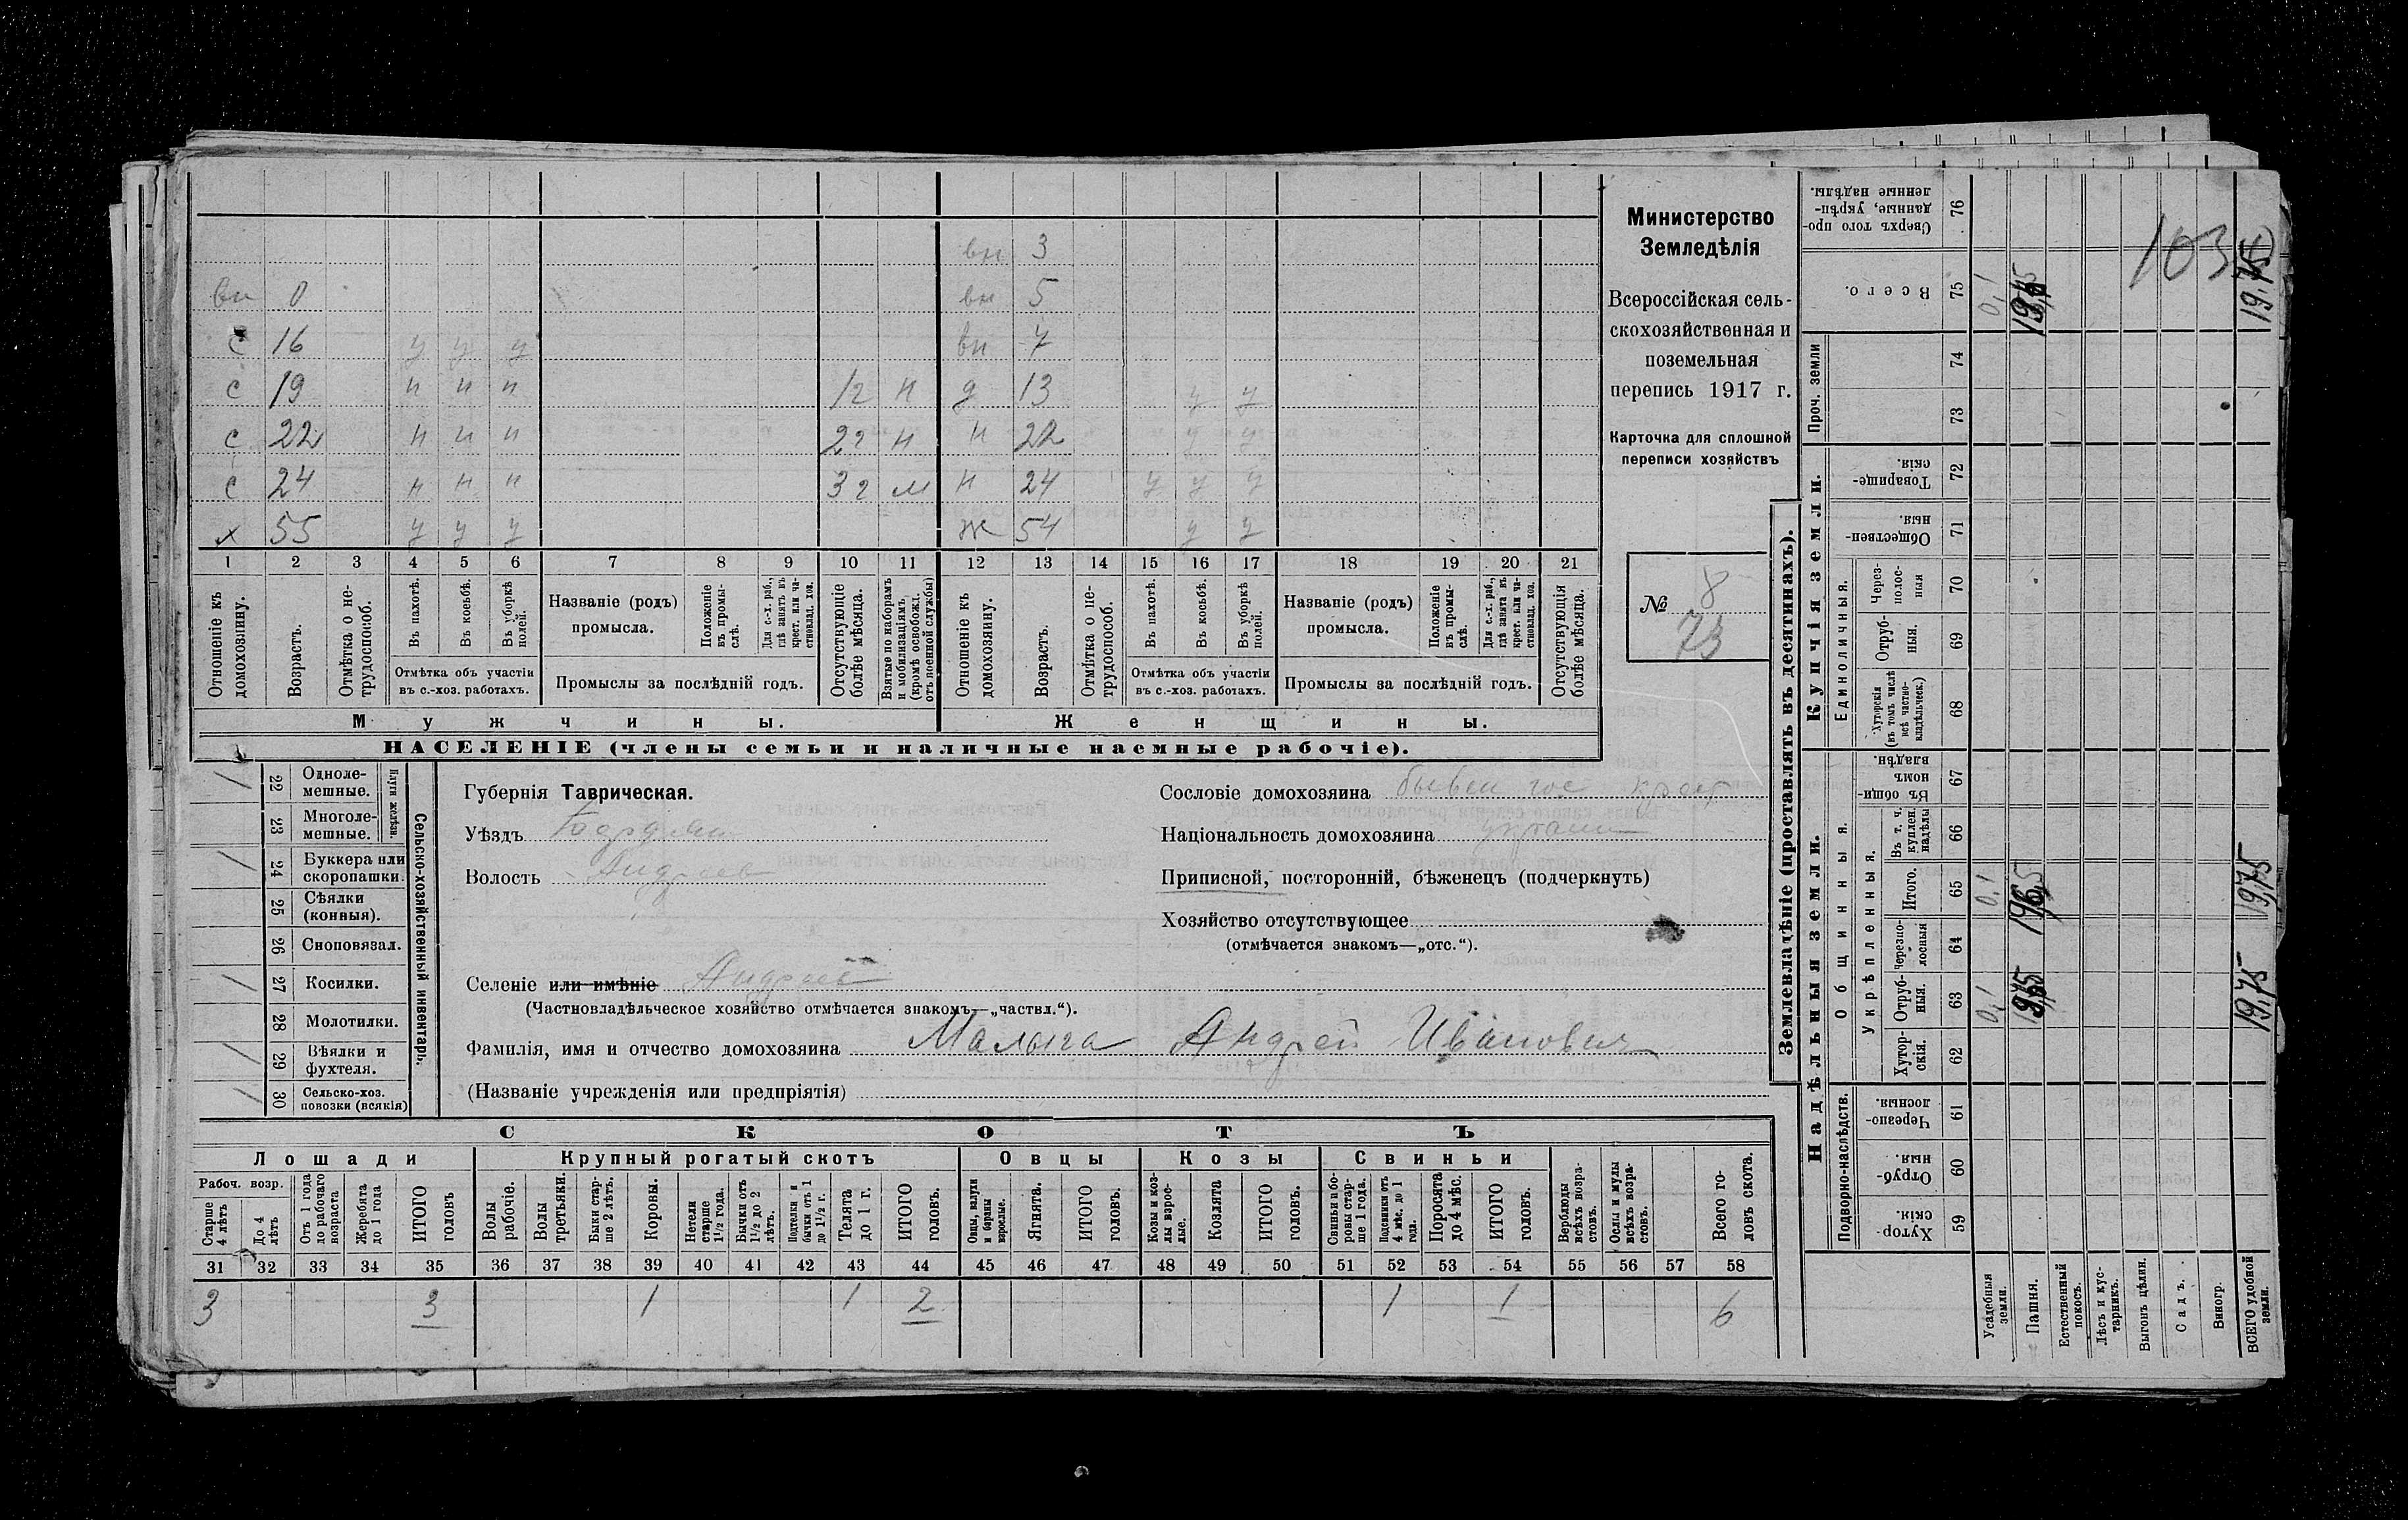 вн 3
вн 0 вн 5
с 16 у у у вн 7
с 19 н н н 1г н д 13 у у
с 22 н н н 2г н н 22 у у
с 24 н н н 3г м н 24 у у у
х 55 у у у ж 54 у у
1 2 3 4 5 6 7 8 9 10 11 12 13 14 15 16 17 18 19 20 21
Отношеніе къ домохозяину.
Возрастъ.
Отмѣтка о не-трудоспособ.
Въ пахотѣ.
Въ косьбѣ.
Въ уборкѣ полей.
Отмѣтка объ участіи въ с.-хоз. работахъ.
Названіе (родъ) промысла.
Положеніе въ промы-слѣ.
Для с.-х. раб., гдѣ занятъ въ крест. или ча-стновлад. хоз.
Промыслы за послѣдній годъ.
Отсутствующіе болѣе мѣсяца.
Взятые по наборамъ и мобилизаціямъ (кромѣ освобожд. отъ военной службы)
Отношеніе къ домохозяину.
Возрастъ.
Отмѣтка о не-трудоспособ.
Въ пахотѣ.
Въ косьбѣ.
Въ уборкѣ полей.
Отмѣтка объ участіи въ с.-хоз. работахъ.
Названіе (родъ) промысла.
Положеніе въ промы-слѣ.
Для с.-х. раб., гдѣ занята въ крест. или ча-стновлад. хоз.
Промыслы за послѣдній годъ.
Отсутствующія болѣе мѣсяца.
Мужчины. Женщины.
НАСЕЛЕНІЕ (члены семьи и наличные наемные рабочіе).
Министерство
Земледѣлія
Всероссійская сель-
скохозяйственная и
поземельная
перепись 1917 г.
Карточка для сплошной
переписи хозяйствъ
№ 8
73
Сельско-хозяйственный инвентарь.
Плуги желѣзн.
1 22 Одноле-мешные.
23 Многоле-мешные.
1 24 Буккера или скоропашки.
25 Сѣялки (конныя).
26 Сноповязал.
1 27 Косилки.
28 Молотилки.
1 29 Вѣялки и фухтеля.
1 30 Сельско-хоз. повозки (всякія)
Губернія Таврическая.
Уѣздъ
Волость Андреев
Селеніе или имѣніе Андреев
(Частновладѣльческое хозяйство отмѣчается знакомъ—„частвл.“).
Фамилія, имя и отчество домохозяина Малыга Андрей Иванович
(Названіе учрежденія или предпріятія)
Сословіе домохозяина бывш гос крест
Національность домохозяина
Приписной, посторонній, бѣженецъ (подчеркнуть)
Хозяйство отсутствующее
(отмѣчается знакомъ—„отс.“).
СКОТЪ
Лошади Крупный рогатый скотъ Овцы Козы Свиньи
Рабоч. возр.
Старше 4 лѣтъ
До 4 лѣтъ
Отъ 1 года до рабочаго возраста
Жеребята до 1 года
ИТОГО головъ
Волы рабочіе.
Волы третьяки.
Быки стар-ше 2 лѣтъ.
Коровы.
Нетели старше 1½ года.
Бычки отъ 1½ до 2 лѣтъ.
Подтелки и бычки отъ 1 до 1½ г.
Телята до 1 г.
ИТОГО головъ.
Овцы, валухи и бараны взрослые.
Ягнята.
ИТОГО головъ.
Козы и коз-лы взрос-лые.
Козлята
ИТОГО головъ.
Свиньи и бо-ровы стар-ше 1 года.
Подсвинки отъ 4 мѣс. до 1 года.
Поросята до 4 мѣс.
ИТОГО головъ.
Верблюды всѣхъ возра-стовъ.
Ослы и мулы всѣхъ возра-стовъ.
Всего го-ловъ скота.
31 32 33 34 35 36 37 38 39 40 41 42 43 44 45 46 47 48 49 50 51 52 53 54 55 56 57 58
3 3 1 1 2 1 1 6
Землевладѣніе (проставлять въ десятинахъ).
Надѣльныя земли. Купчія земли. Проч. земли
Подворно-наслѣдств. Общинныя. Единоличныя.
Укрѣпленныя.
Хутор-скія. 59
Отруб-ныя. 60
Черезпо-лосныя. 61
Хутор-скія. 62
Отруб-ныя. 63
Черезпо-лосныя 64
Итого. 65
Въ т. ч. куплен. надѣлы 66
Въ общи-номъ владѣн. 67
Хуторскія (въ томъ числѣ всѣ частно-владѣльческ.) 68
Отруб-ныя. 69
Через-полос-ныя 70
Обществен-ныя. 71
Товарище-скія. 72
73
74
Всего. 75
Сверхъ того про-данные, укрѣп-ленные надѣлы. 76
Усадебныя земли. 0,1 0,1 0,1
Пашня.
Естественный покосъ.
Лѣсъ и кус-тарникъ.
Выгонъ цѣлин.
Садъ.
Виногр.
ВСЕГО удобной земли. 19,75 19,75 19,75
103